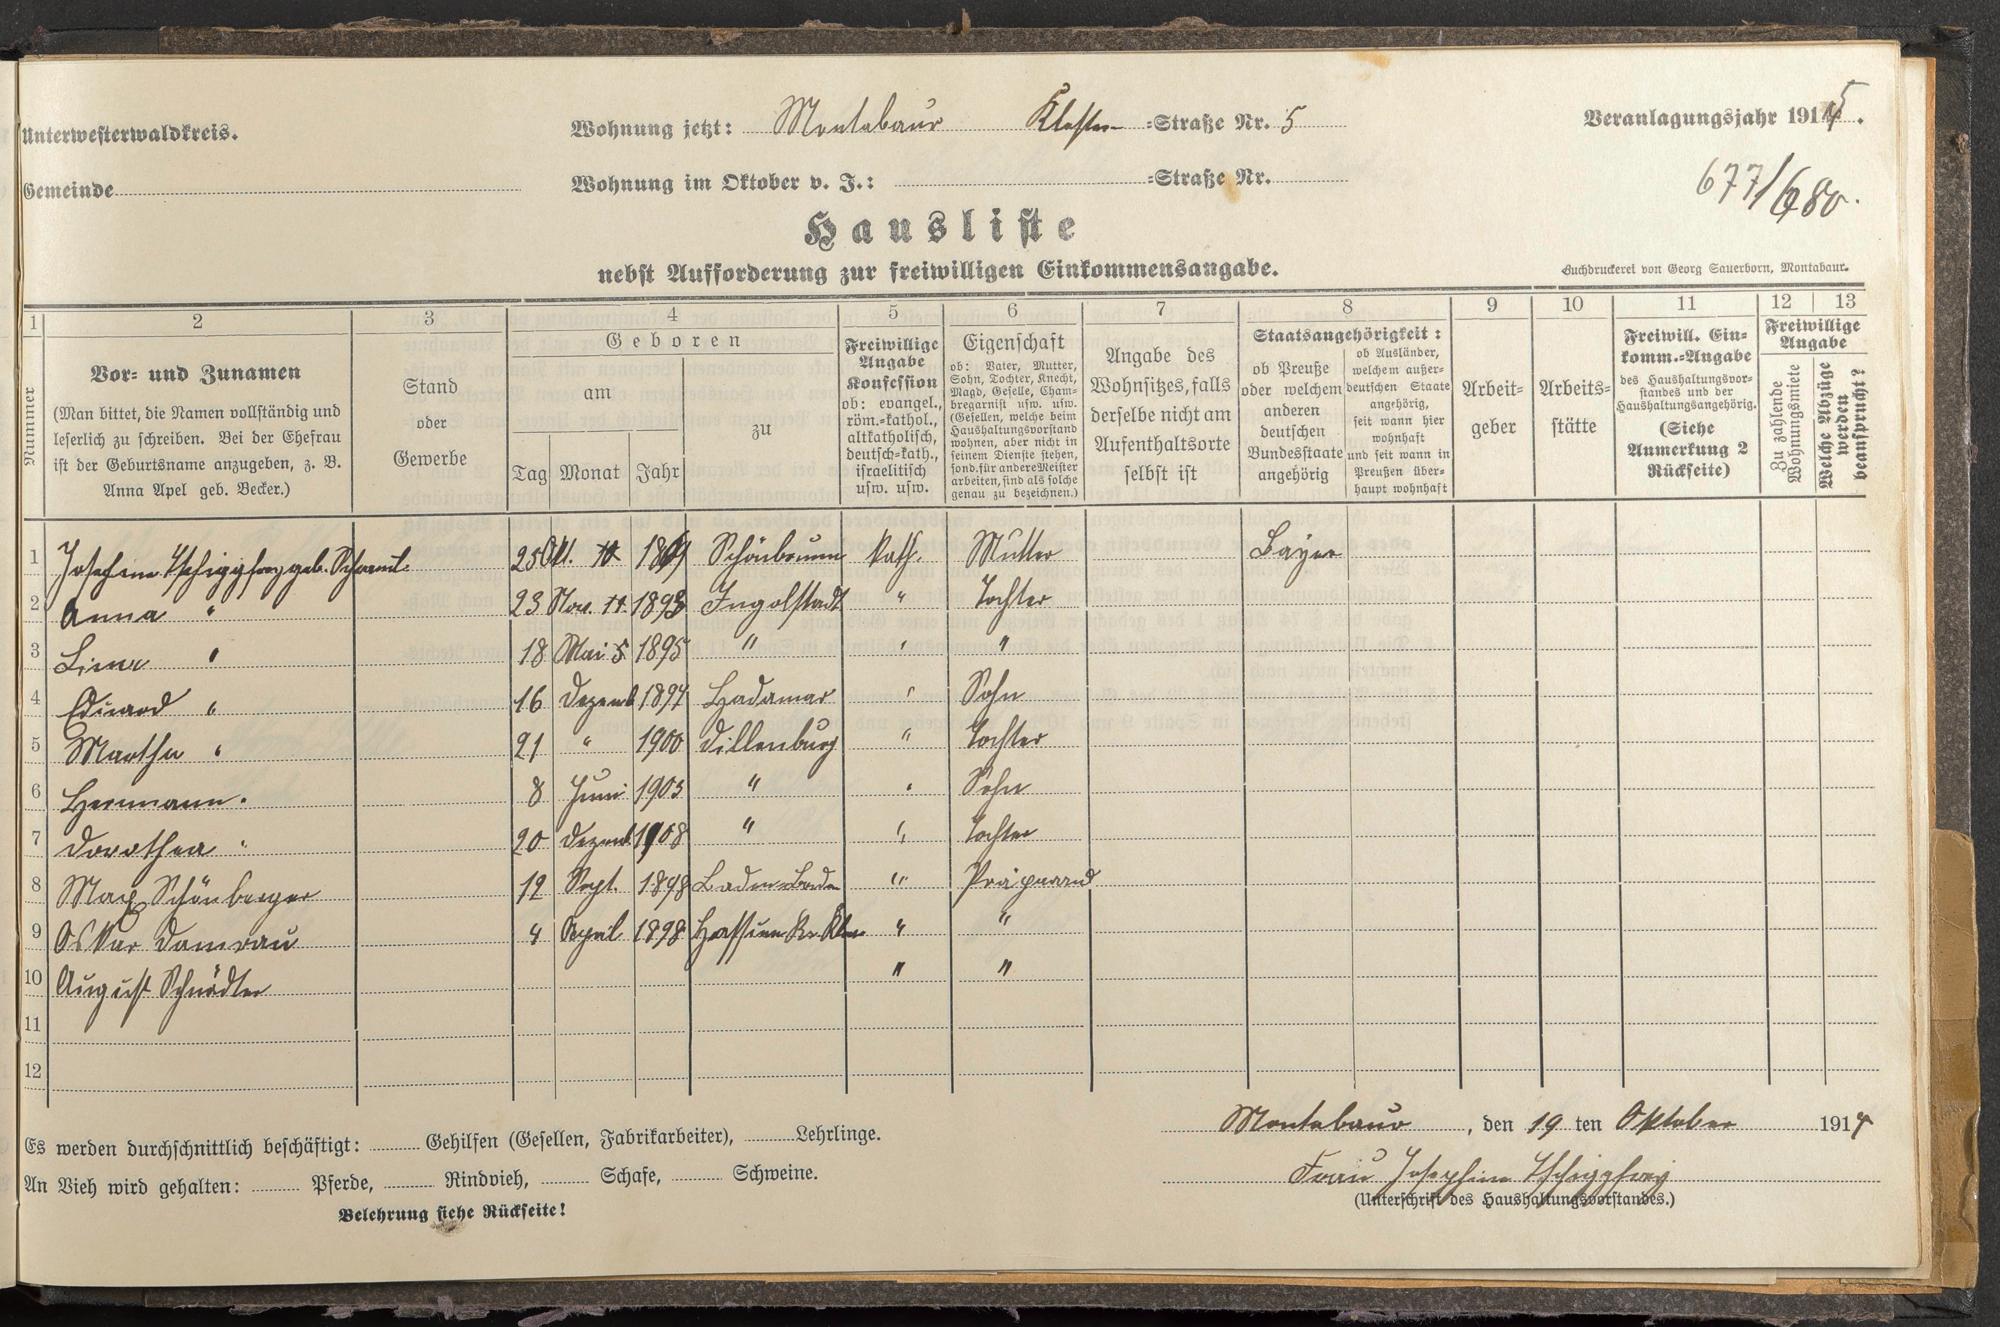 Unterwesterwaldkreis.
Wohnung jetzt: Montabaur Kloster- =Straße Nr. 5
Veranlagungsjahr 1915.
Gemeinde
Wohnung im Oktober v. J.: =Straße Nr.
677/680.
Hausliste
nebst Aufforderung zur freiwilligen Einkommensangabe.
Buchdruckerei von Georg Sauerborn, Montabaur.
1 2 3 4 5 6 7 8 9 10 11 12 13
Nummer
Vor- und Zunamen
(Man bittet, die Namen vollständig und
leserlich zu schreiben. Bei der Ehefrau
ist der Geburtsname anzugeben, z. B.
Anna Apel geb. Becker.)
Stand
oder
Gewerbe
Geboren
am
Tag Monat Jahr
zu
Freiwillige
Angabe
Konfession
ob: evangel.,
röm.-kathol.,
altkatholisch,
deutsch-kath.,
israelitisch
usw. usw.
Eigenschaft
ob: Vater, Mutter,
Sohn, Tochter, Knecht,
Magd, Geselle, Cham-
bregarnist usw. usw.
(Gesellen, welche beim
Haushaltungsvorstand
wohnen, aber nicht in
seinem Dienste stehen,
sond. für andere Meister
arbeiten, sind als solche
genau zu bezeichnen.)
Angabe des
Wohnsitzes, falls
derselbe nicht am
Aufenthaltsorte
selbst ist
Staatsangehörigkeit:
ob Preuße
oder welchem
anderen
deutschen
Bundesstaate
angehörig
ob Ausländer,
welchem außer-
deutschen Staate
angehörig,
seit wann hier
wohnhaft
und seit wann in
Preußen über-
haupt wohnhaft
Arbeit-
geber
Arbeits-
stätte
Freiwill. Ein-
komm.-Angabe
des Haushaltungsvor-
standes und der
Haushaltungsangehörig.
(Siehe
Anmerkung 2
Rückseite)
Freiwillige
Angabe
Zu zahlende
Wohnungsmiete
Welche Abzüge
werden
beansprucht?
1 geb. 25 Okt. 10 Schönbrunn kath. Mutter Bayer
2 Anna " 23 Nov. 11 1893 Ingolstadt " Tochter
3 " 18 Mai 5 1895 " " "
4 Eduard " 16 Dezemb 1897 Hadamar " Sohn
5 Martha " 21 " 1900 Dillenburg " Tochter
6 Hermann " 8 Juni 1903 " " Sohn
7 Dorothea " 20 Dezemb 1908 " " Tochter
8 Max Schönberger 12 Sept. 1898 Baden-Baden " Präparand
9 Oskar Damrau 4 April 1898 " "
10 August " "
11
12
Es werden durchschnittlich beschäftigt: Gehilfen (Gesellen, Fabrikarbeiter), Lehrlinge.
An Vieh wird gehalten: Pferde, Rindvieh, Schafe, Schweine.
Belehrung siehe Rückseite!
Montabaur, den 19 ten Oktober 1914
Frau Josephine
(Unterschrift des Haushaltungsvorstandes.)